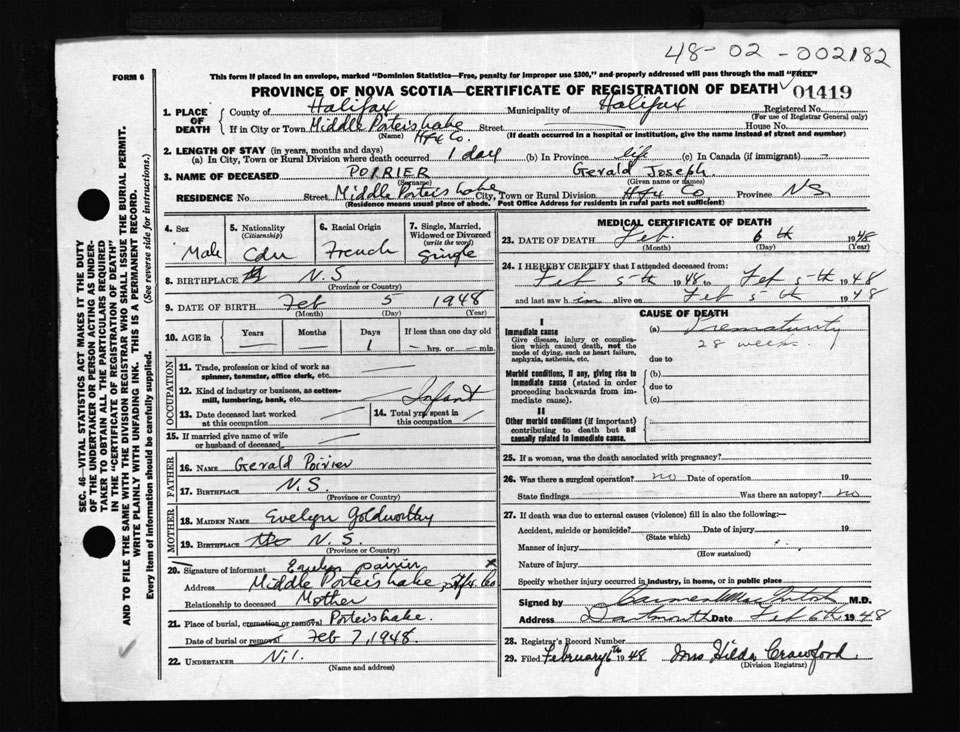 48-02-002182
FORM 6
This form if placed in an envelope, marked "Dominion Statistics—Free, penalty for improper use $300," and properly addressed will pass through the mail "FREE"
PROVINCE OF NOVA SCOTIA—CERTIFICATE OF REGISTRATION OF DEATH 01419
1. PLACE OF DEATH County of Halifax Municipality of Halifax Registered No.
(For use of Registrar General only)
If in City or Town Middle Porter's Lake Street House No.
(Name) Hfx Co (If death occurred in a hospital or institution, give the name instead of street and number)
2. LENGTH OF STAY (in years, months and days)
(a) In City, Town or Rural Division where death occurred 1 day (b) In Province life (c) In Canada (if immigrant) -
3. NAME OF DECEASED POIRIER Gerald Joseph.
(Surname) (Given name or names)
RESIDENCE No. Street Middle Porter's Lake City, Town or Rural Division Hfx Co Province N.S.
(Residence means usual place of abode. Post Office Address for residents in rural parts not sufficient)
4. Sex Male
5. Nationality (Citizenship) Cdn
6. Racial Origin French
7. Single, Married, Widowed or Divorced (write the word) Single
8. BIRTHPLACE N.S.
(Province or Country)
9. DATE OF BIRTH Feb 5 1948
(Month) (Day) (Year)
10. AGE in Years — Months — Days 1 If less than one day — hrs. or — min.
OCCUPATION
11. Trade, profession or kind of work as spinner, teamster, office clerk, etc. —
12. Kind of industry or business, as cotton-mill, lumbering, bank, etc. Infant
13. Date deceased last worked at this occupation —
14. Total yrs. spent in this occupation
15. If married give name of wife or husband of deceased —
FATHER
16. NAME Gerald Poirier
17. BIRTHPLACE N.S.
(Province or Country)
MOTHER
18. MAIDEN NAME Evelyn Goldworthy
19. BIRTHPLACE N.S.
(Province or Country)
20. Signature of informant Evelyn Poirier x
Address Middle Porter's Lake, Hfx. Co
Relationship to deceased Mother
21. Place of burial, cremation or removal Porter's Lake.
Date of burial or removal Feb 7, 1948.
22. UNDERTAKER Nil.
(Name and address)
MEDICAL CERTIFICATE OF DEATH
23. DATE OF DEATH Feb. 6th 1948
(Month) (Day) (Year)
24. I HEREBY CERTIFY that I attended deceased from:
Feb 5th 1948 to Feb 5th 1948
and last saw him alive on Feb 5th 1948
CAUSE OF DEATH
I
Immediate cause (a) Prematurity
Give disease, injury or complication which caused death, not the mode of dying, such as heart failure, asphyxia, asthenia, etc. 28 weeks.
due to
Morbid conditions, if any, giving rise to immediate cause (stated in order proceeding backwards from immediate cause). (b)
due to
(c)
II
Other morbid conditions (if important) contributing to death but not causally related to immediate cause.
25. If a woman, was the death associated with pregnancy?
26. Was there a surgical operation? no Date of operation 19
State findings Was there an autopsy? no
27. If death was due to external causes (violence) fill in also the following:—
Accident, suicide or homicide? Date of injury 19
(State which)
Manner of injury
(How sustained)
Nature of injury
Specify whether injury occurred in industry, in home, or in public place
Signed by Carmen MacIntosh M.D.
Address Dartmouth Date Feb 6th 1948
28. Registrar's Record Number
29. Filed February 6th 1948 Mrs Hilda Crawford
(Division Registrar)
SEC. 46—VITAL STATISTICS ACT MAKES IT THE DUTY
OF THE UNDERTAKER OR PERSON ACTING AS UNDER-
TAKER TO OBTAIN ALL THE PARTICULARS REQUIRED
IN THE "CERTIFICATE OF REGISTRATION OF DEATH"
AND TO FILE THE SAME WITH THE DIVISION REGISTRAR WHO SHALL ISSUE THE BURIAL PERMIT.
WRITE PLAINLY WITH UNFADING INK. THIS IS A PERMANENT RECORD.
Every item of information should be carefully supplied. (See reverse side for instructions.)